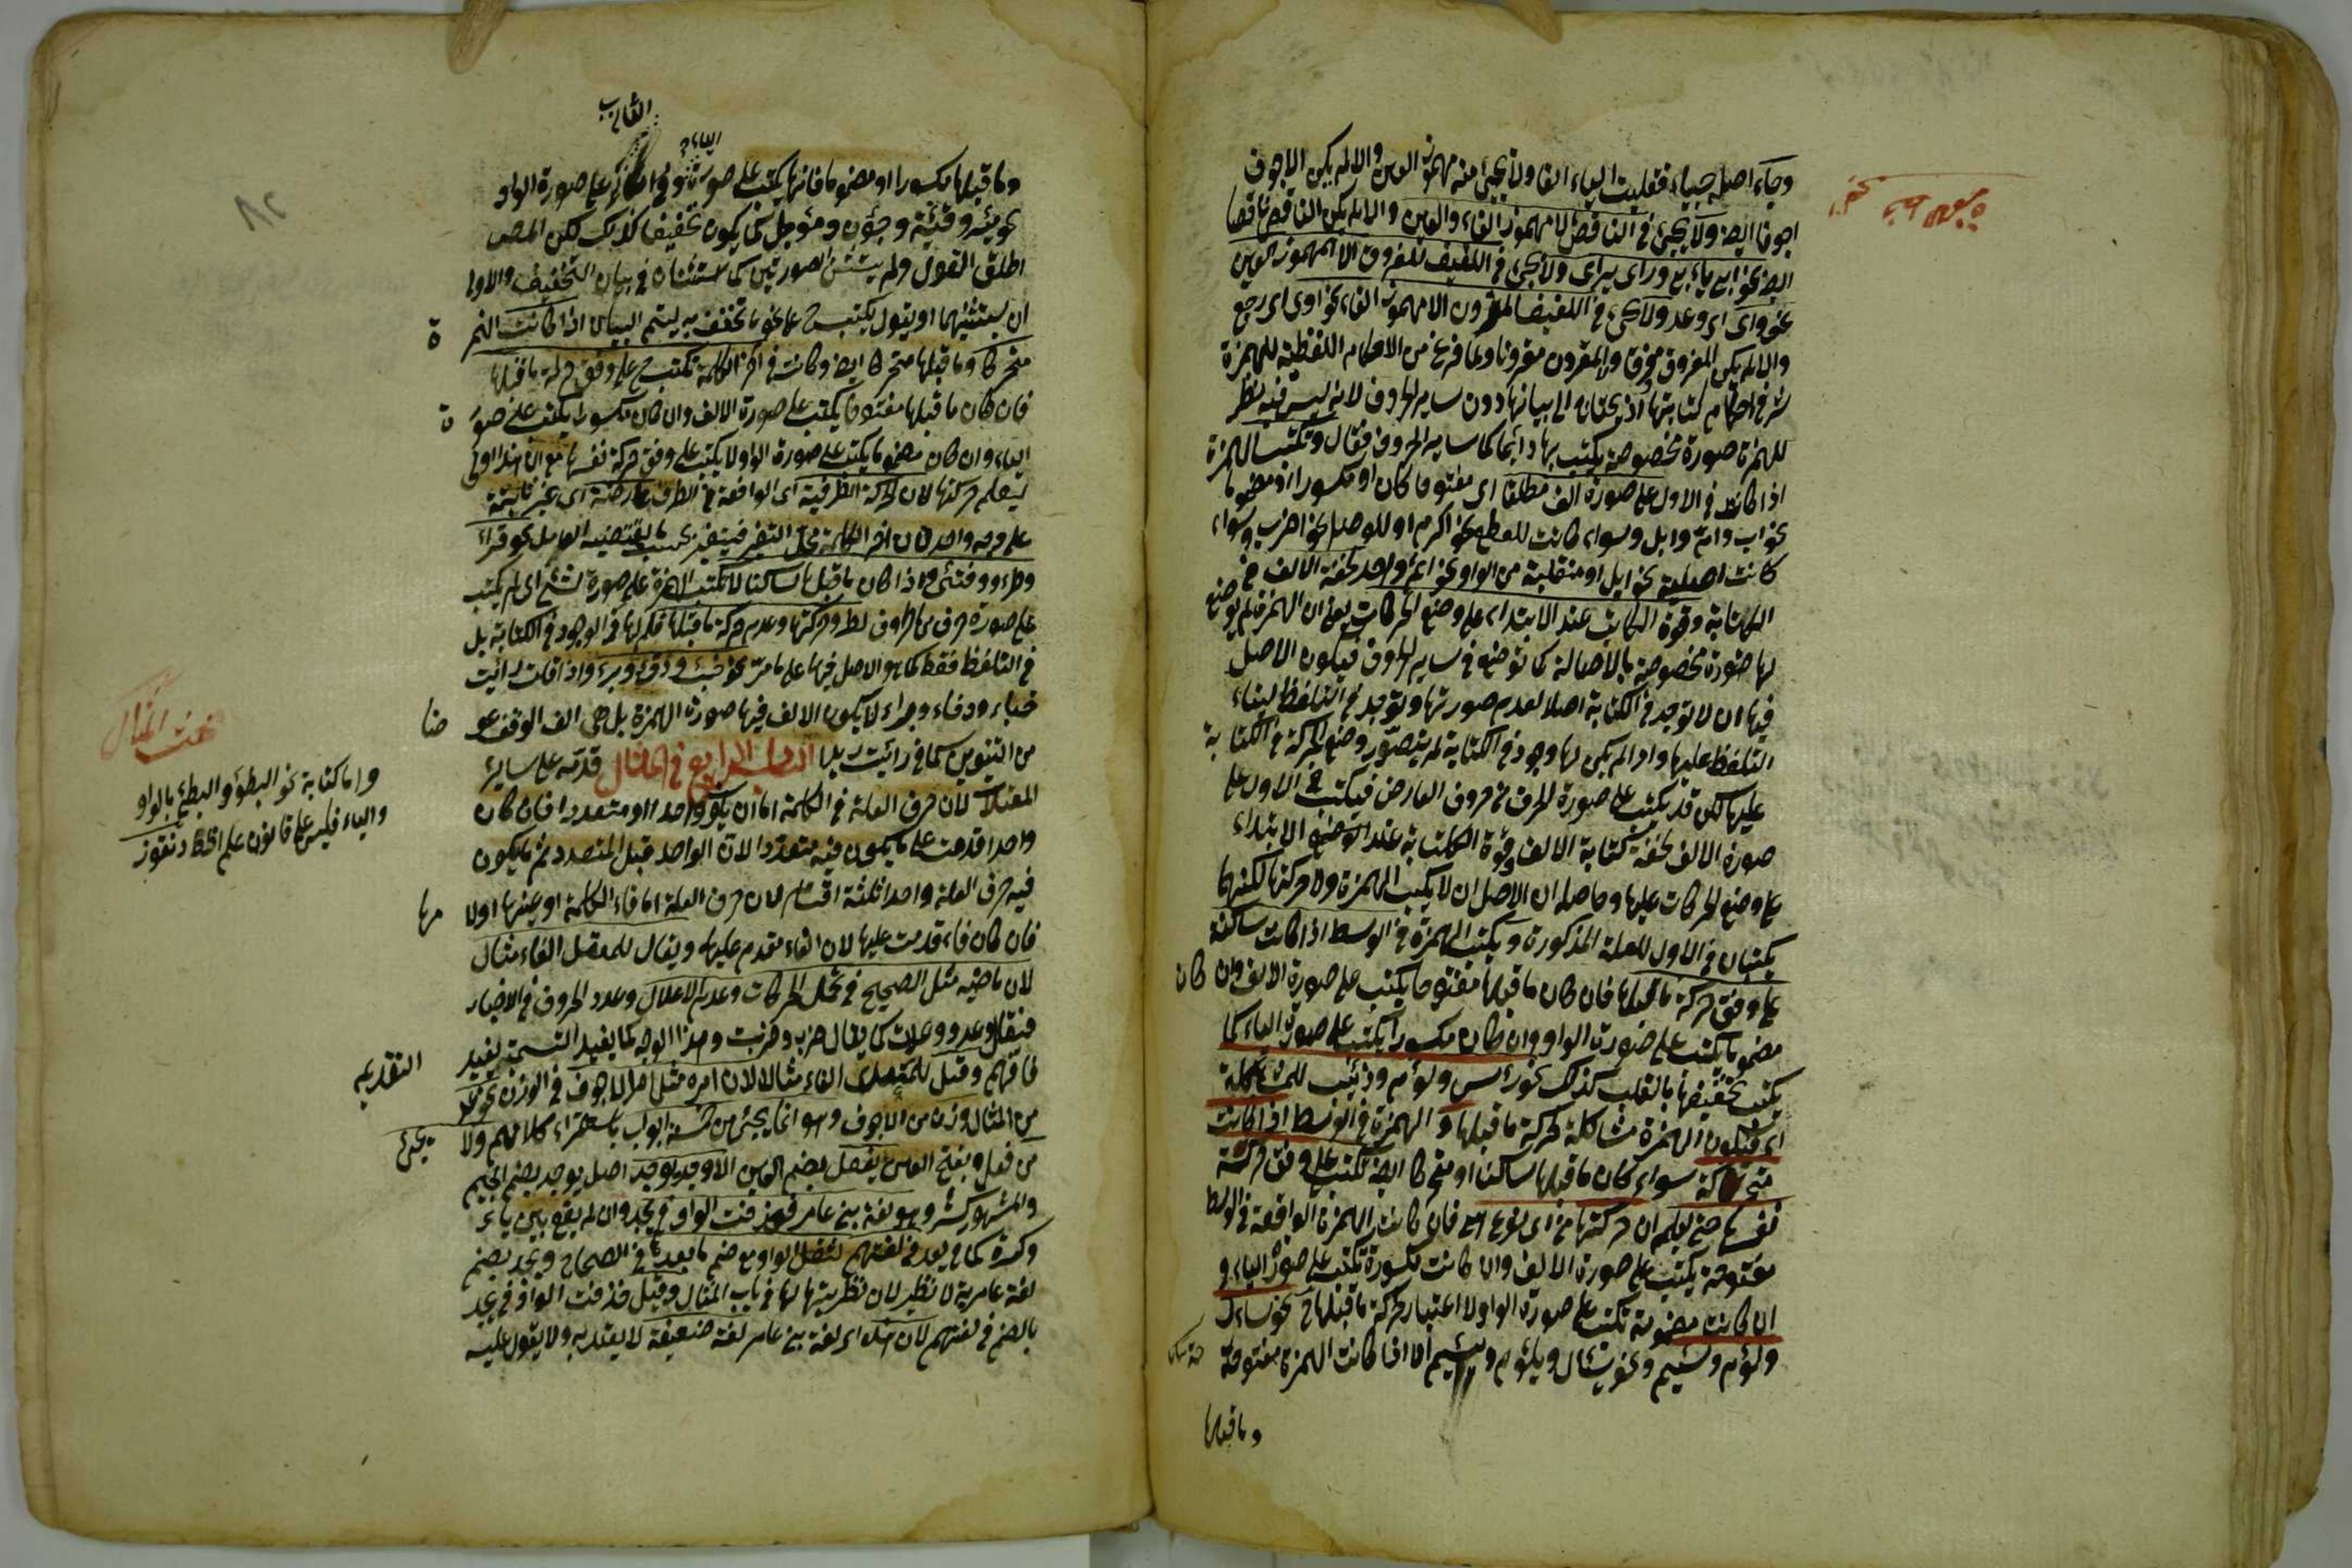 وجاء اصله جيأ فقلبت الياء الفا ولا يجئ منه مهموز العين والا لم يكن الاجوف
اجوفا ايضا ولا يجئ في الناقص الا مهموز الفاء والعين والا لم يكن الناقص ناقصا
ايضا نحو ابى يابى ورأى يرأى ولا يجئ في اللفيف المفروق الا مهموز العين
نحو وأى اى وعد ولا يجئ في اللفيف المقرون الا مهموز الفاء نحو اوى اى رجع
والا لم يكن المفروق مفروقا والمقرون مقرونا ولما فرغ من الاحكام اللفظية للهمزة
شرع في احكام كتابتها اذ يحتاج الى بيانها دون ساير الحروف لانه ليس فيه نظر
للهمزة صورة مخصوصة يكتب بها دائما كساير الحروف فقال وتكتب الهمزة
اذا كانت في الاول على صورة الف مطلقا اى مفتوحا كان او مكسورا او مضموما
نحو اب وام وابل وسواء كانت للقطع نحو اكرم او للوصل نحو اضرب وسواء
كانت اصلية نحو ابل او منقلبة من الواو نحو احد لخفة الالف في
الكتابة وقوة الكاتب عند الابتداء على وضع الحركات يعنى ان الهمزة لم يوضع
لها صورة مخصوصة بالاصالة كما توضع في ساير الحروف فيكون الاصل
فيها ان لا توجد في الكتابة اصلا لعدم صورتها وتوجد في التلفظ لبقاء
التلفظ عليها واذا لم يكن لها وجود في الكتابة لم يتصور وضع الحركة في الكتابة
عليها لكن قد يكتب على صورة الحرف من حروف العارض فيكتب في الاول على
صورة الالف لخفة كتابة الالف وقوة الكاتب عند الابتداء
على وضع الحركات عليها وحاصله ان الاصل ان لا يكتب الهمزة ولا حركتها لكنهما
يكتبان في الاول للعلة المذكورة ويكتب الهمزة في الوسط اذا كانت ساكنة
على وفق حركة ما قبلها فان كان ما قبلها مفتوحا يكتب على صورة الالف وان كان
مضموما يكتب على صورة الواو وان كان مكسورا يكتب على صورة الياء كما
يكتب تخفيفها بالقلب كذلك نحو رأس ولؤم وذئب للمشاكلة
اى ليكون الهمزة مشاكلة لحركة ما قبلها والهمزة في الوسط اذا كانت
متحركة سواء كان ما قبلها ساكنا او متحركا ايضا تكتب على وفق حركة
نفسها حتى يعلم ان حركتها من اى نوع هى فان كانت الهمزة الواقعة في الوسط
مفتوحة يكتب على صورة الالف وان كانت مكسورة تكتب على صورة الياء و
ان كانت مضمومة تكتب على صورة الواو ولا اعتبار لحركة ما قبلها نحو سأل
ولؤم وسئم ونحو يسأل ويلؤم ويسئم اما اذا كانت الهمزة مفتوحة
وما قبلها
وما قبلها مكسورا او مضموما فانها يكتب على صورة الياء في الاول وعلى صورة الواو
نحو مئر وفئة وجؤن ومؤجل كما يكون تخفيفها كذلك لكن المص
اطلق القول ولم يستثن الصورتين كما استثناه في بيان التخفيف والاولى
ان يستثنيهما او يقول يكتب على نحو ما تخفف به ليتم البيان اذا كانت الهمزة
متحركا وما قبلها متحركا ايضا وكانت في اخر الكلمة تكتب على وفق حركة ما قبلها
فان كان ما قبلها مفتوحا يكتب على صورة الالف وان كان مكسورا يكتب على صورة
الياء وان كان مضموما يكتب على صورة الواو لا يكتب على وفق حركة نفسها
ليعلم حركتها لان الحركة الطرفية اى الواقعة في الطرف عارضة اى غير ثابتة
على وجه واحد لان اخر الكلمة محل التغير فيتغير بحسب ما يقتضيه العامل نحو قرأ
وطرؤ وفتئ واذا كان ما قبلها ساكنا لا تكتب الهمزة على صورة شئ اى لم يكتب
على صورة حرف من الحروف لطرو حركتها وعدم حركة ما قبلها فلم لها في الوجود في الكتابة بل
في التلفظ فقط كما هو الاصل فيها على ما مر نحو خبء ودفء وبرء واذا قلت رأيت
خباء ودفاء وبراء لا يكون الالف فيها صورة الهمزة بل هى الف الوقف عوضا
من التنوين كما في رأيت زيدا الباب الرابع في المثال قدمه على ساير
المعتلات لان حرف العلة في الكلمة اما ان يكون واحدا او متعددا فان كان
واحدا قدمت على ما يكون فيه متعددا لان الواحد قبل المتعدد ثم ما يكون
فيه حرف العلة واحدا ثلثة اقسام لان حرف العلة اما فاء الكلمة او عينها او لامها
فان كان فاء قدمت عليها لان الفاء مقدم عليها ويقال للمعتل الفاء مثال
لان ماضيه مثل الصحيح في تحمل الحركات وعدم الاعلال وعدد الحروف في الاخبار
فيقال وعد ووعدت كما يقال ضرب وضربت وهذا الوجه كما يفيد التسمية يفيد التقديم
فافهم وقيل للمعتل الفاء مثالا لان امره مثل امر الاجوف في الوزن نحو عد
من المثال وزن من الاجوف وهو انما يجئ من خمسة ابواب باستقراء كلامهم ولا يجئ
من فعل بفتح العين يفعل بضم العين الا وجد يوجد اصل يوجد بضم الجيم
والمشهور كسره وهو لغة بنى عامر فحذفت الواو في يجد وان لم يقع بين ياء
وكسرة كما في يعد في لغتهم لثقل الواو مع ضم ما بعدها في الصحاح ويجد بضم
لغة عامرية لا نظير لان نظريتها لها في باب المثال وقيل حذفت الواو في يجد
بالضم في لغتهم لان هذه اى لغة بنى عامر لغة ضعيفة لا يعتد به ولا يقول عليه
واما كتابة نحو البطؤ والبطئ بالواو
والياء فليس على قانون علم الخط
بحث المثال